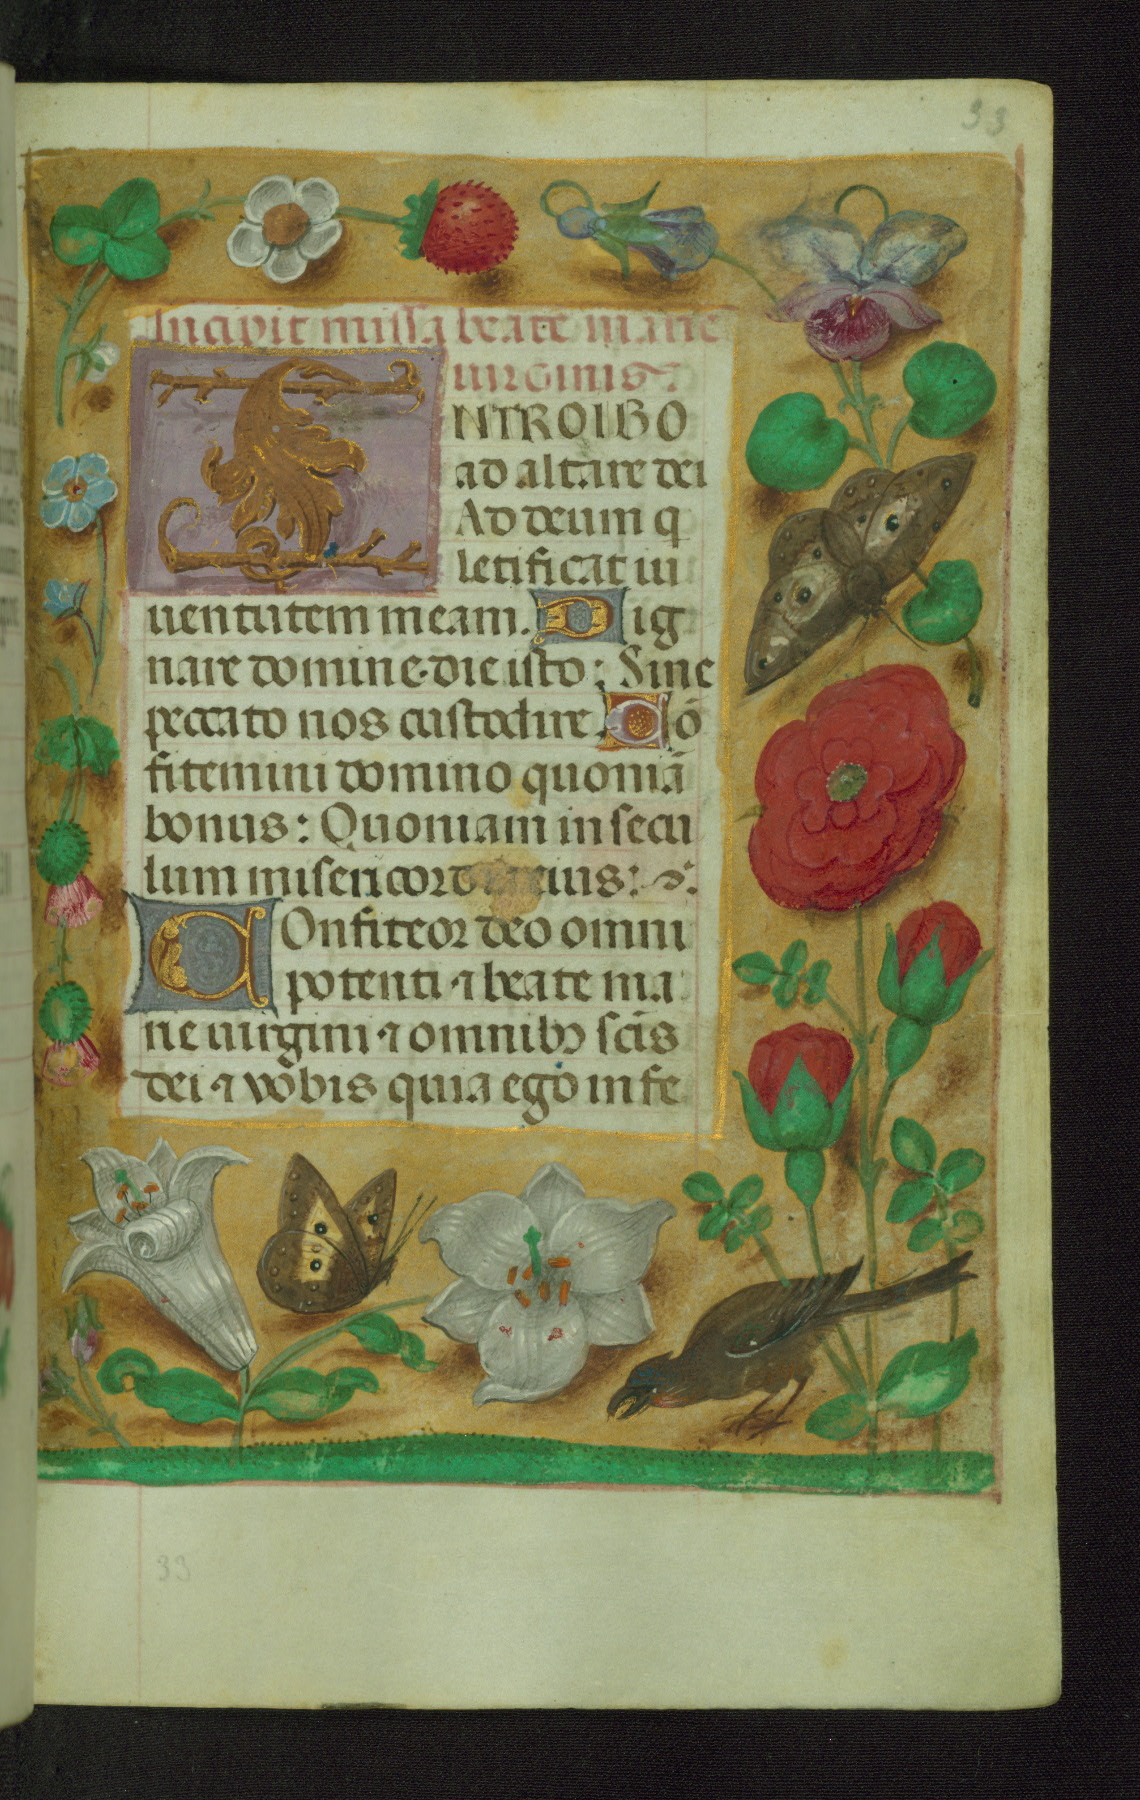 33
Incipit missa beate marie
uirginis
INTROIBO
ad altare dei
Ad deum q
letificat iu
uentutem meam. Dig
nare domine die isto: Sine
peccato nos custodire Cō
fitemini domino quoniā
bonus: Quoniam in secu
lum misericordia eius:
Confiteor deo omni
potenti ⁊ beate ma
rie uirgini ⁊ omnibꝫ scīs
dei ⁊ vobis quia ego infe
33